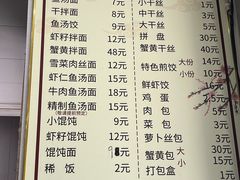 鱼汤面 7元
干拌面 8元
鱼汤饺 9元
虾籽拌面 12元
蟹黄拌面 30元
雪菜肉丝面 12元
虾仁鱼汤面 15元
牛肉鱼汤面 18元
精制鱼汤面 15元
小馄饨 9元
虾籽馄饨 12元
馄饨面 元
稀饭 2元
小干丝
中干丝
大干丝
拼盘 30元
蟹黄干丝 40元
特色煎饺 大份 14元
小份 10元
鲜虾饺 16元
鸡蛋 2元
肉包 2元
菜包 2元
萝卜丝包 2元
蟹黄包 大 30元
小 15元
打包盒 1元